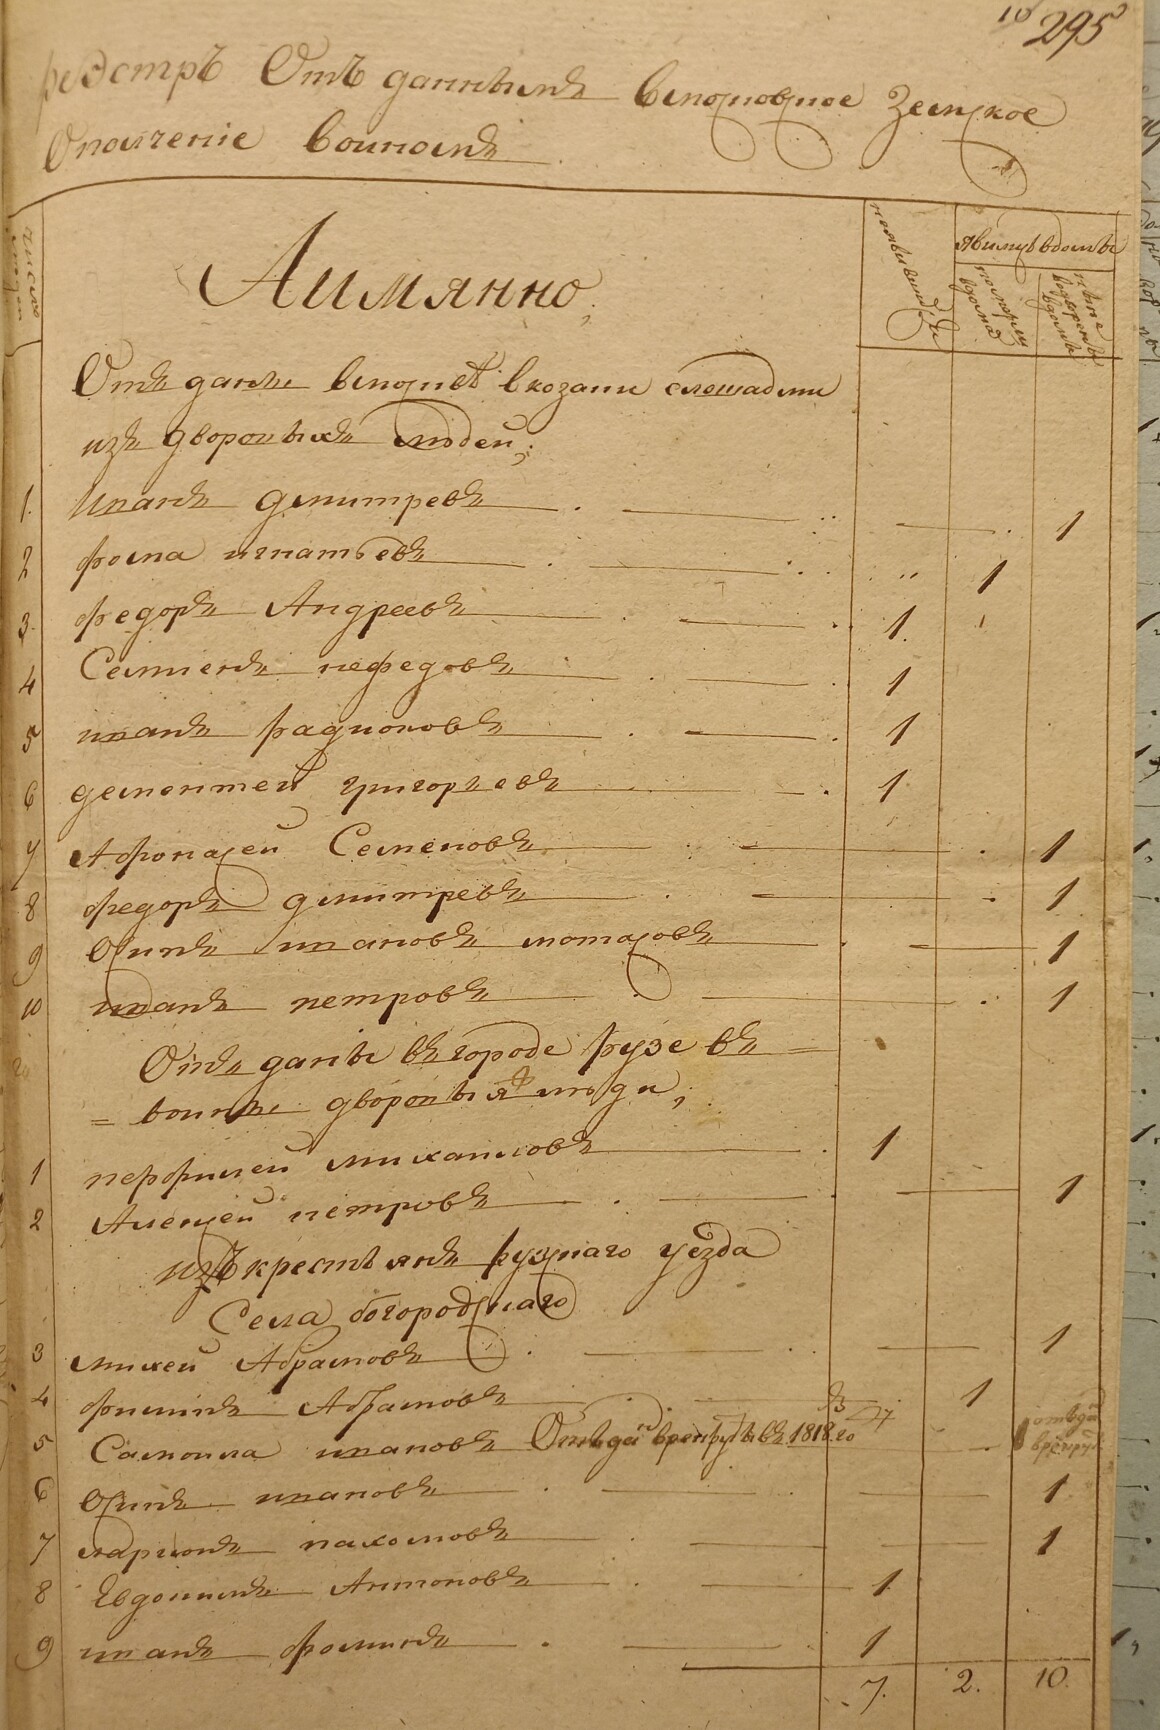 10 295
реэстръ Отъ даннымъ вмосковское Земское
Ополчение воиномъ
число людей
Аимянно;
неявившихся
явились вдомы
померли вдомах
ныне вдомех
Отъ даны вмоскве вкозаки слошадми
изъ дворовыхъ людей;
1. иванъ дмитревъ 1
2 фома игнатьевъ 1
3. федоръ Андреевъ 1.
4 Семненъ нефедовъ 1
5 иванъ радионовъ 1
6 дементей григорьевъ 1
7 Афонасей Семеновъ 1
8 федоръ дмитревъ 1
9 Осипъ ивановъ мотасовъ 1
10 иванъ петровъ 1
Отъ даны въ городе рузе въ =
= воины дворовыя люди;
1 перфилей михаиловъ 1
2 Алексей петровъ 1
изъ крестьянъ рузскаго уезда
Села богородскаго
3 михей Абрамовъ 1
4 филипъ Абрамовъ 1
5 Самоила ивановъ Отъдан врекруты въ 1818 го 1 отъдан врекру
6 Осипъ ивановъ 1
7 ларионъ пахомовъ 1
8 Евдокимъ Антоновъ 1
9 иванъ фоминъ 1
7. 2. 10.